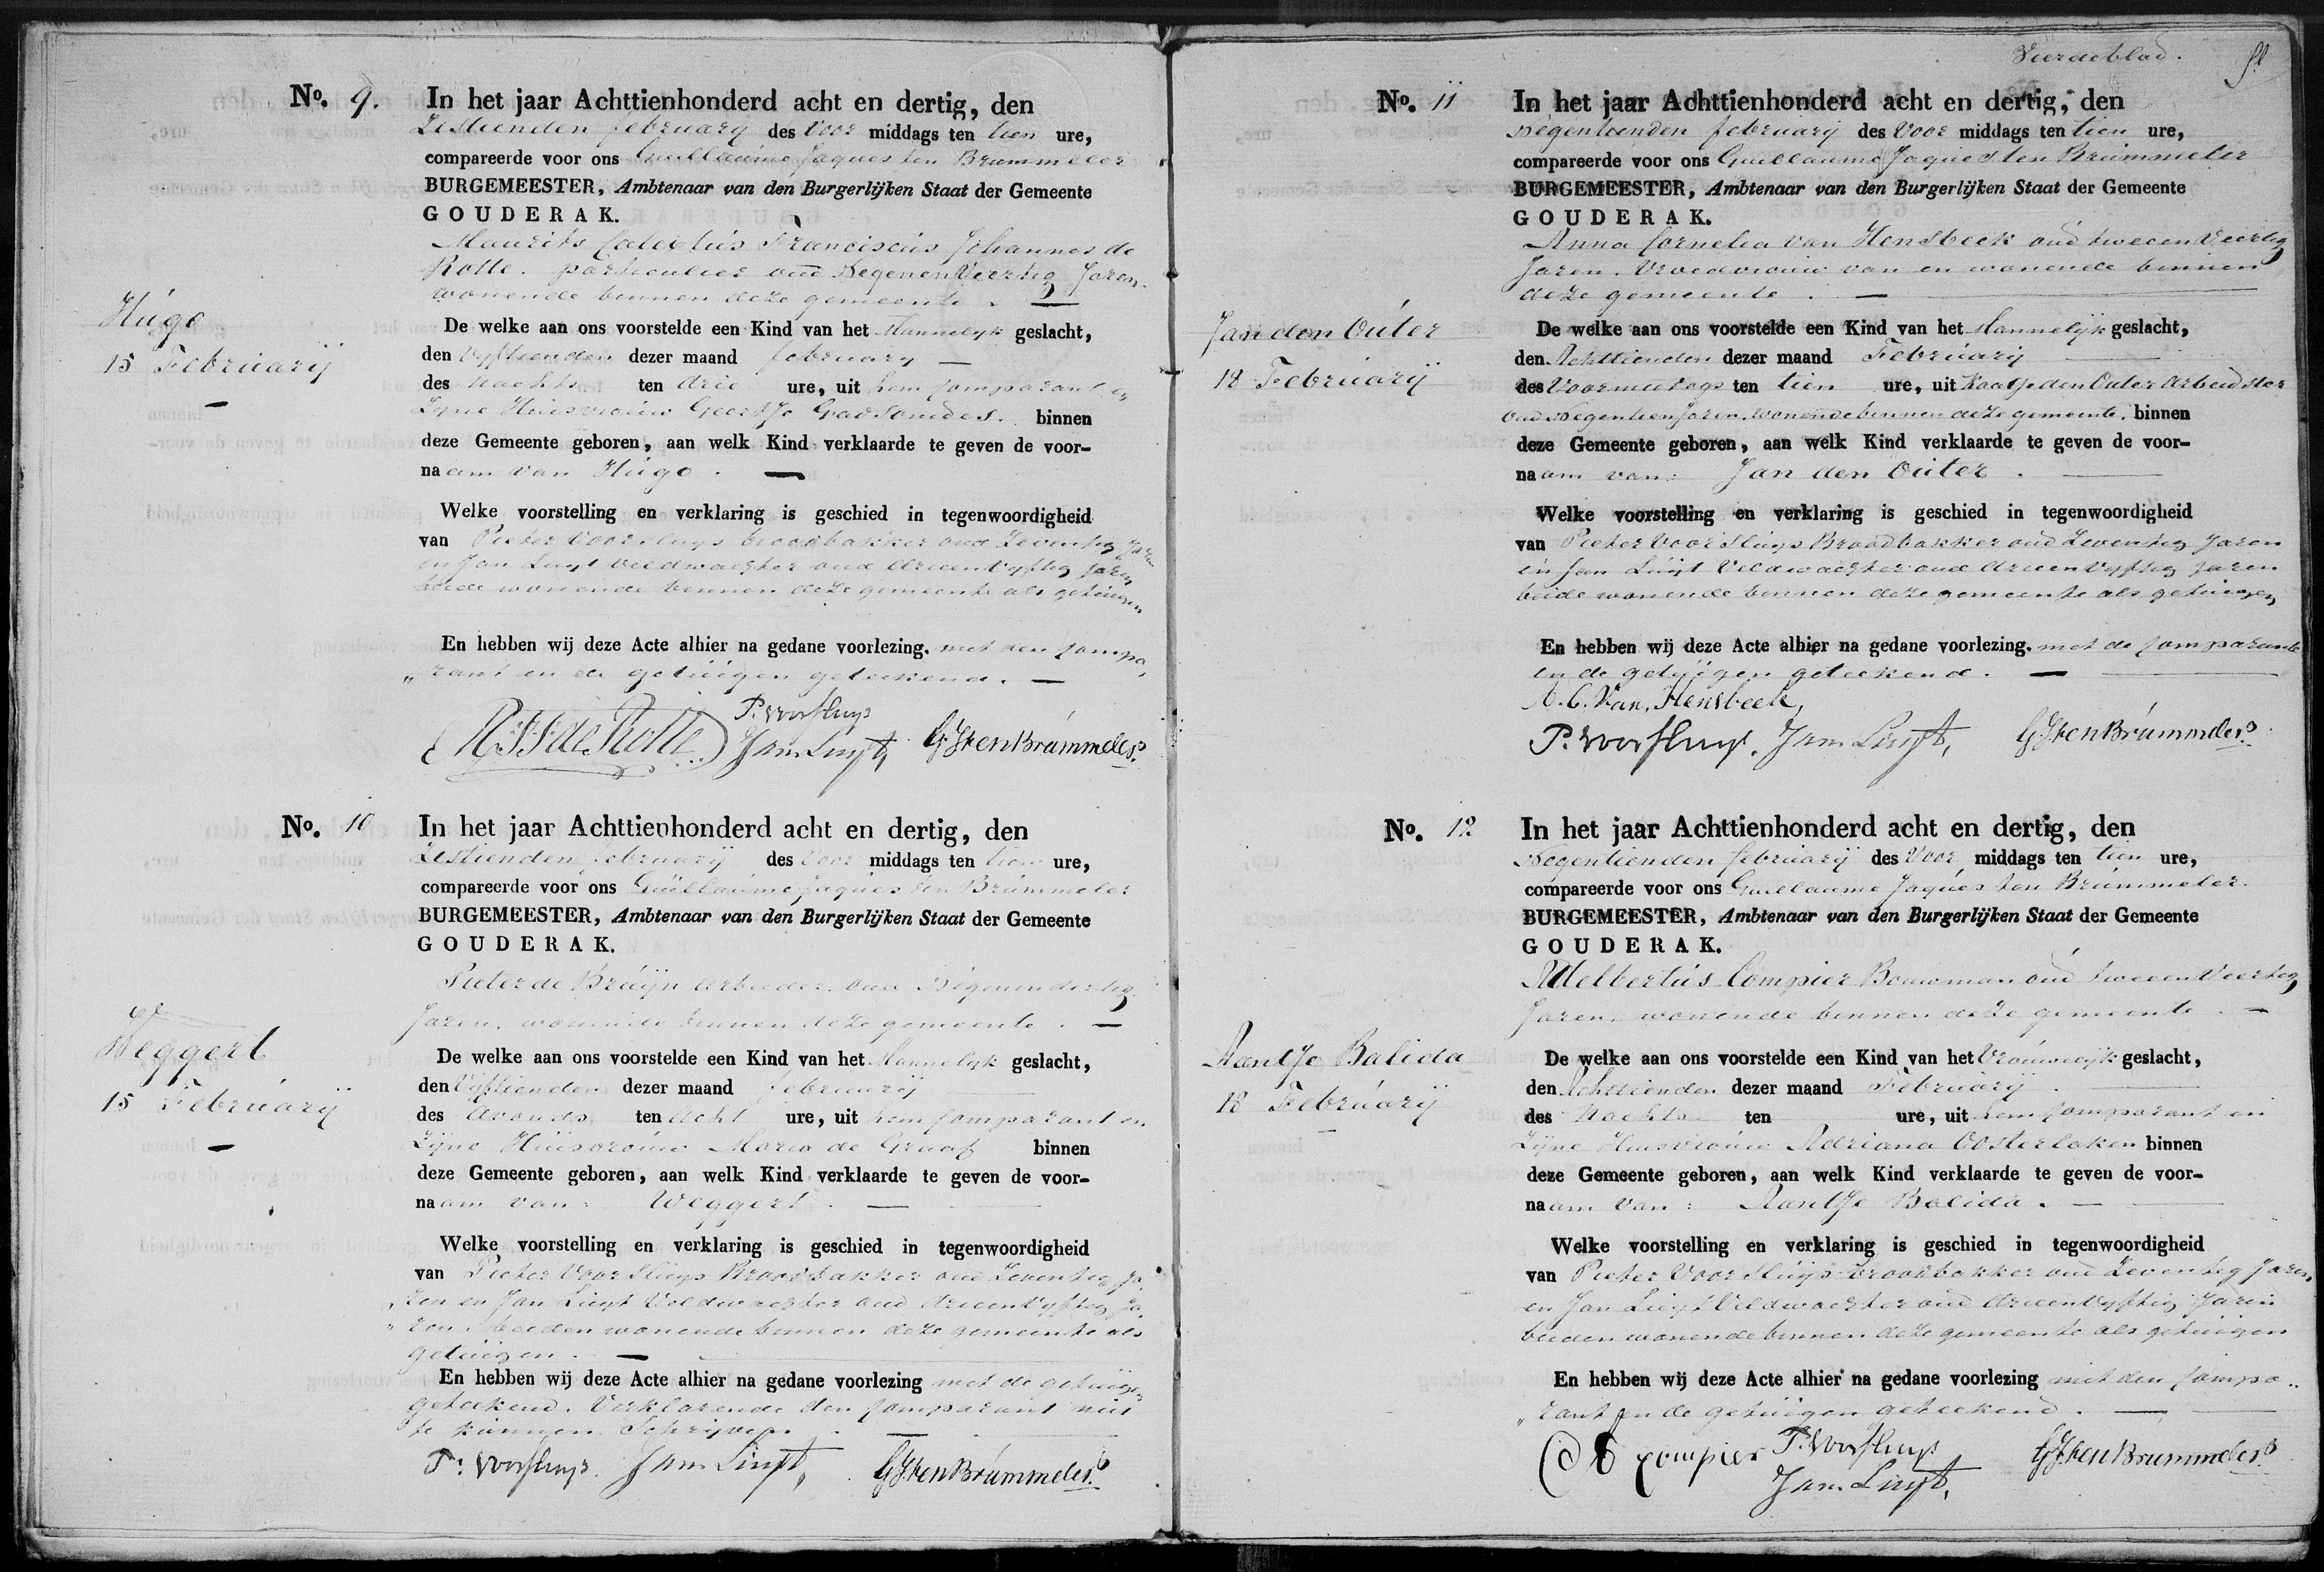 No. 9.
In het jaar Achttienhonderd acht en dertig, den
Zestienden februarij des Voor middags ten tien ure,
compareerde voor ons Guillaume Jaques ten Brummeler
BURGEMEESTER, Ambtenaar van den Burgerlijken Staat der Gemeente
GOUDERAK.
Maurits Franciscus Johannes de
Rotte. particulier oud Negenen Veertig Jaren.
wonende binnen deze gemeente. —
Hugo
15 Februarij
—
De welke aan ons voorstelde een Kind van het Mannelyk geslacht,
den Vyftienden dezer maand februarij —
des Nachts ten drie ure, uit hem Comparant en
Zyne Huisvrouw Geertje binnen
deze Gemeente geboren, aan welk Kind verklaarde te geven de voor-
naam van Hugo. —
Welke voorstelling en verklaring is geschied in tegenwoordigheid
van Pieter Voorsluys broodbakker oud Zeventig Jaren
en Jan Luyt Veldwachter oud drieenVyftig Jaren
beide wonende binnen deze gemeente als getuigen
En hebben wij deze Acte alhier na gedane voorlezing. met den Compa„
„rant en de getuigen geteekend. —
P. Voorsluys
de Rotte Jan Luyt, GJtenBrummeler
No. 10
In het jaar Achttienhonderd acht en dertig, den
Zestienden februarij des Voor middags ten tien ure,
compareerde voor ons Guillaume Jaques ten Brummeler
BURGEMEESTER, Ambtenaar van den Burgerlijken Staat der Gemeente
GOUDERAK.
Pieter de Bruijn Arbeider. oud Negenendertig
Jaren. wonende binnen deze gemeente. —
Weggert
15 Februarij
—
De welke aan ons voorstelde een Kind van het Mannelyk geslacht,
den Vyftienden dezer maand februarij
des Avonds ten Acht ure, uit hem Comparant en
Zyne Huisvrouw Maria de Graaf binnen
deze Gemeente geboren, aan welk Kind verklaarde te geven de voor-
naam van: Weggert. —
Welke voorstelling en verklaring is geschied in tegenwoordigheid
van Pieter Voorsluys Broodbakker oud Zeventig Ja„
„ren en Jan Luyt Veldwachter oud drieenVyftig Ja„
„ren. beiden wonende binnen deze gemeente als
getuigen. —
En hebben wij deze Acte alhier na gedane voorlezing met de getuigen
geteekend. Verklarende den Comparant niet
te kunnen Schrijven.
P. Voorsluys. Jan Luyt, GJtenBrummeler
Vierdeblad.
No. 11
In het jaar Achttienhonderd acht en dertig, den
Negentienden februarij des Voor middags ten tien ure,
compareerde voor ons Guillaume Jaques ten Brummeler
BURGEMEESTER, Ambtenaar van den Burgerlijken Staat der Gemeente
GOUDERAK.
Anna Cornelia van Hensbeek oud tweeen Veertig
Jaren. Vroedvrouw van en wonende binnen
deze gemeente. —
Jan den Outer
18 Februarij
De welke aan ons voorstelde een Kind van het Mannelijk geslacht,
den Achttienden dezer maand Februarij
des Voormiddags ten tien ure, uit Kaatje den Outer Arbeidster
oud Negentien Jaren. wonende binnen deze gemeente. binnen
deze Gemeente geboren, aan welk Kind verklaarde te geven de voor-
naam van: Jan den Outer.
Welke voorstelling en verklaring is geschied in tegenwoordigheid
van Pieter Voorsluys Broodbakker oud Zeventig Jaren
en Jan Luyt Veldwachter oud drieenVyftig Jaren
beide wonende binnen deze gemeente als getuigen
En hebben wij deze Acte alhier na gedane voorlezing. met de Comparante
en de getuigen geteekend. —
A. C. Van. Hensbeek,
P. Voorsluys. Jan Luyt, GJtenBrummeler
No. 12
In het jaar Achttienhonderd acht en dertig, den
Negentienden februarij des Voor middags ten tien ure,
compareerde voor ons Guillaume Jaques ten Brummeler.
BURGEMEESTER, Ambtenaar van den Burgerlijken Staat der Gemeente
GOUDERAK.
Adelbertus Compier Bouwman oud tweeen Veertig
Jaren. wonende binnen deze gemeente. —
Aantje Balida
18 Februarij
—
De welke aan ons voorstelde een Kind van het Vrouwelijk geslacht,
den Achttienden dezer maand Februarij.
des Nachts ten ure, uit hem Comparant en
Zijne Huisvrouw Adriana Oosterlaken binnen
deze Gemeente geboren, aan welk Kind verklaarde te geven de voor-
naam van: Aantje Balida. —
Welke voorstelling en verklaring is geschied in tegenwoordigheid
van Pieter Voorsluys broodbakker oud Zeventig Jaren
en Jan Luyt Veldwachter oud drieenVyftig Jaren
beiden wonende binnen deze gemeente als getuigen
En hebben wij deze Acte alhier na gedane voorlezing met den Compa„
„rant en de getuigen geteekend. —
A Compier P. Voorsluys GJtenBrummeler
Jan Luyt,